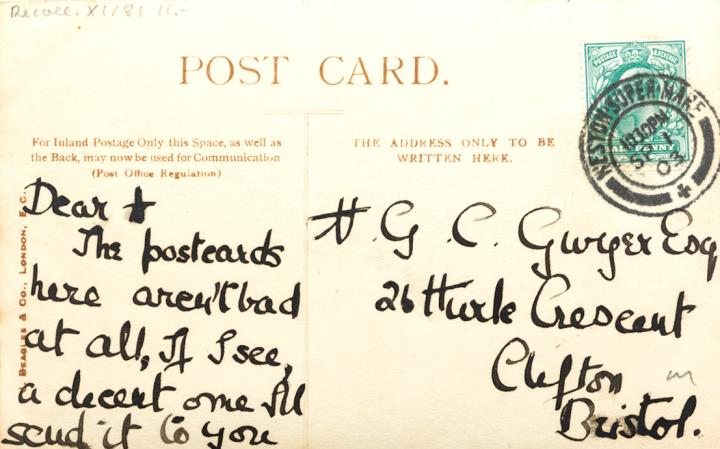 Recoll. XI/81 11.-
POST CARD.
For Inland Postage Only this Space, as well as
the Back, may now be used for Communication
(Post Office Regulation)
THE ADDRESS ONLY TO BE
WRITTEN HERE.
POSTAGE & REVENUE
HALFPENNY
WESTON-SUPER-MARE
SP 1
03
BEAGLES & Co., LONDON, E.C.
Dear H
The postcards
here aren't bad
at all, If I see,
a decent one I'll
send it to you
H. G. C. Gwyer Esq
26 Hurle Crescent
Clifton
Bristol.